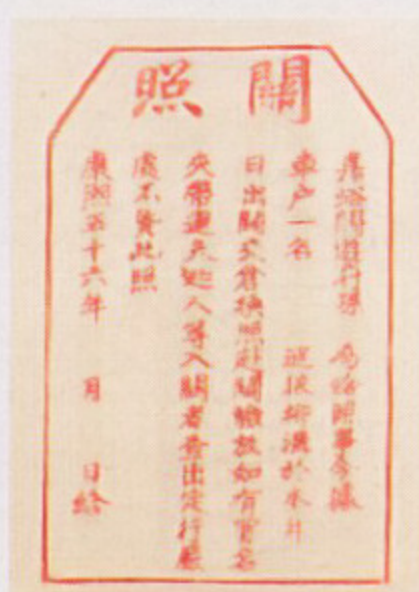 關照
嘉峪關遊擊 為給照事今據
車户一名
日出關交倉換照赴關繳放如有冒名
夾帶逃人等入關者查出定行嚴
處不貸此照
康熙五十六年 月 日給